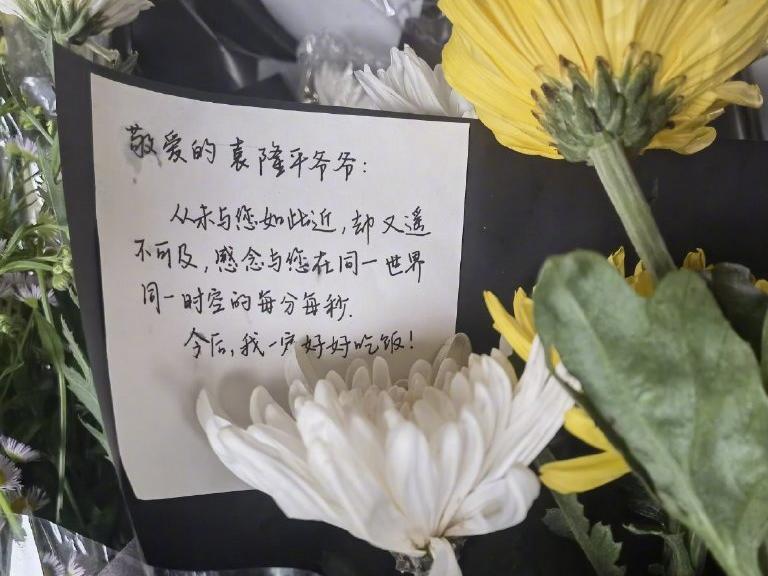 敬爱的袁隆平爷爷：
从未与您如此近，却又遥
不可及，感念与您在同一世界
同一时空的每分每秒.
今后，我一定好好吃饭！